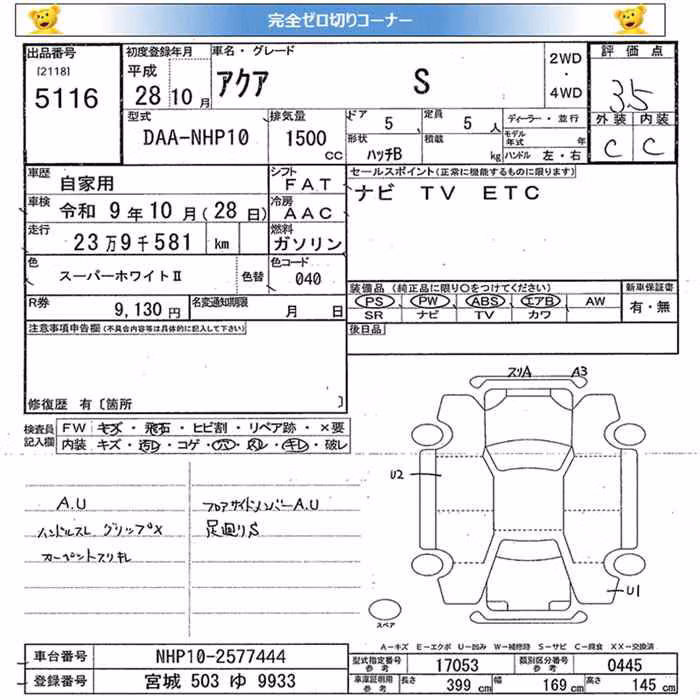 完全ゼロ切りコーナー
出品番号 [2118] 5116
初度登録年月 平成 28 10 月
車名・グレード アクア S
2WD・4WD
評価点 3.5
外装 C 内装 C
型式 DAA-NHP10
排気量 1500 cc
ドア 5
定員 5 人
形状 ハッチB
積載 kg
ディーラー・並行
モデル年式 年
ハンドル 左・右
車歴 自家用
シフト FAT
車検 令和 9年 10 月(28 日)
冷房 AAC
走行 23万9千581 km
燃料 ガソリン
色 スーパーホワイトⅡ 色替
色コード 040
R券 9,130 円
名変通知期限 月 日
セールスポイント(正常に機能するものに限ります)
ナビ TV ETC
装備品(純正品に限り○をつけてください)
PS PW ABS エアB AW
SR ナビ TV カワ
新車保証書 有・無
後日品
注意事項申告欄(不具合内容等は具体的に記入して下さい)
修復歴 有〔箇所 〕
検査員記入欄
FW キズ・飛石・ヒビ割・リペア跡・×要
内装 キズ・汚レ・コゲ・穴・スレ・キレ・破レ
A.U
ハンドルスレ グリップ×
カーペットスリキレ
フロアサイドメンバーA.U
足廻りS
スリA A3
U2
U1
スペア
A-キズ E-エクボ U-凹み W-補修跡 S-サビ C-腐食 XX-交換済
車台番号 NHP10-2577444
登録番号 宮城 503 ゆ 9933
型式指定番号 参考 17053
類別区分番号 参考 0445
車庫証明用 参考 長さ 399 cm 幅 169 cm 高さ 145 cm